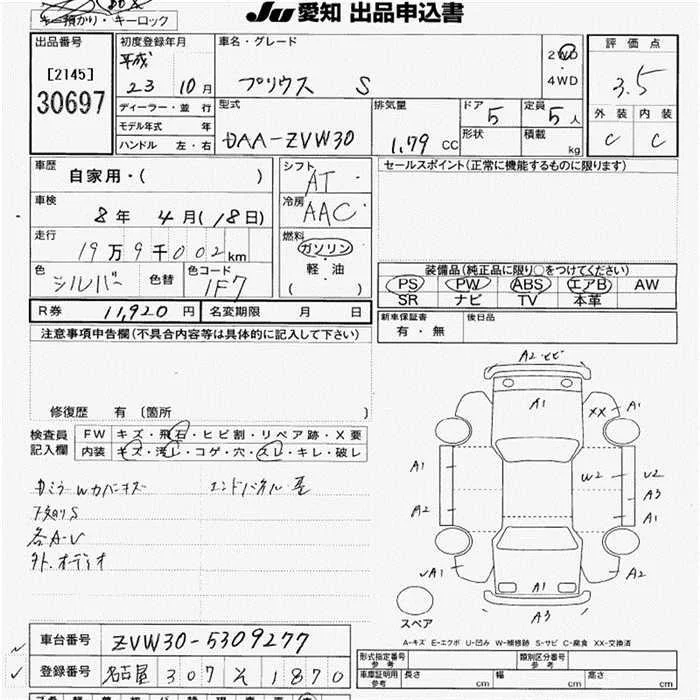 キー預かり・キーロック
JU 愛知 出品申込書
出品番号
[2145]
30697
初度登録年月
平成
23 10月
ディーラー・並行
モデル年式 年
ハンドル 左・右
車名・グレード
プリウス S
2WD
・
4WD
型式
DAA-ZVW30
排気量
1.79 CC
ドア
5
形状
定員
5人
積載
kg
評価点
3.5
外装 内装
C C
車歴
自家用・( )
車検
8年 4月(18日)
走行
19万9千002km
色
シルバー
色替
色コード
1F7
シフト
AT
冷房
AAC
燃料
ガソリン
・
軽・油
( )
セールスポイント(正常に機能するものに限ります)
装備品(純正品に限り○をつけてください)
PS PW ABS エアB AW
SR ナビ TV 本革
新車保証書
有・無
後日品
R券 11,920円 名変期限 月 日
注意事項申告欄(不具合内容等は具体的に記入して下さい)
修復歴 有 〔箇所 〕
検査員
記入欄
FW キズ・飛石・ヒビ割・リペア跡・X要
内装 キズ・汚レ・コゲ・穴・スレ・キレ・破レ
下廻りS
各A-U
外.オーデオ
A2・ヒビ
A1
XX A1
A1
A2
W2
U2
A3
A1
UA1
A1
A2
A3
スペア
A-キズ E-エクボ U-凹み W-補修跡 S-サビ C-腐食 XX-交換済
車台番号 ZVW30-5309277
登録番号 名古屋 307 そ 1870
形式指定番号
参考
類別区分番号
参考
車庫証明用
参考
長さ cm 幅 cm 高さ cm